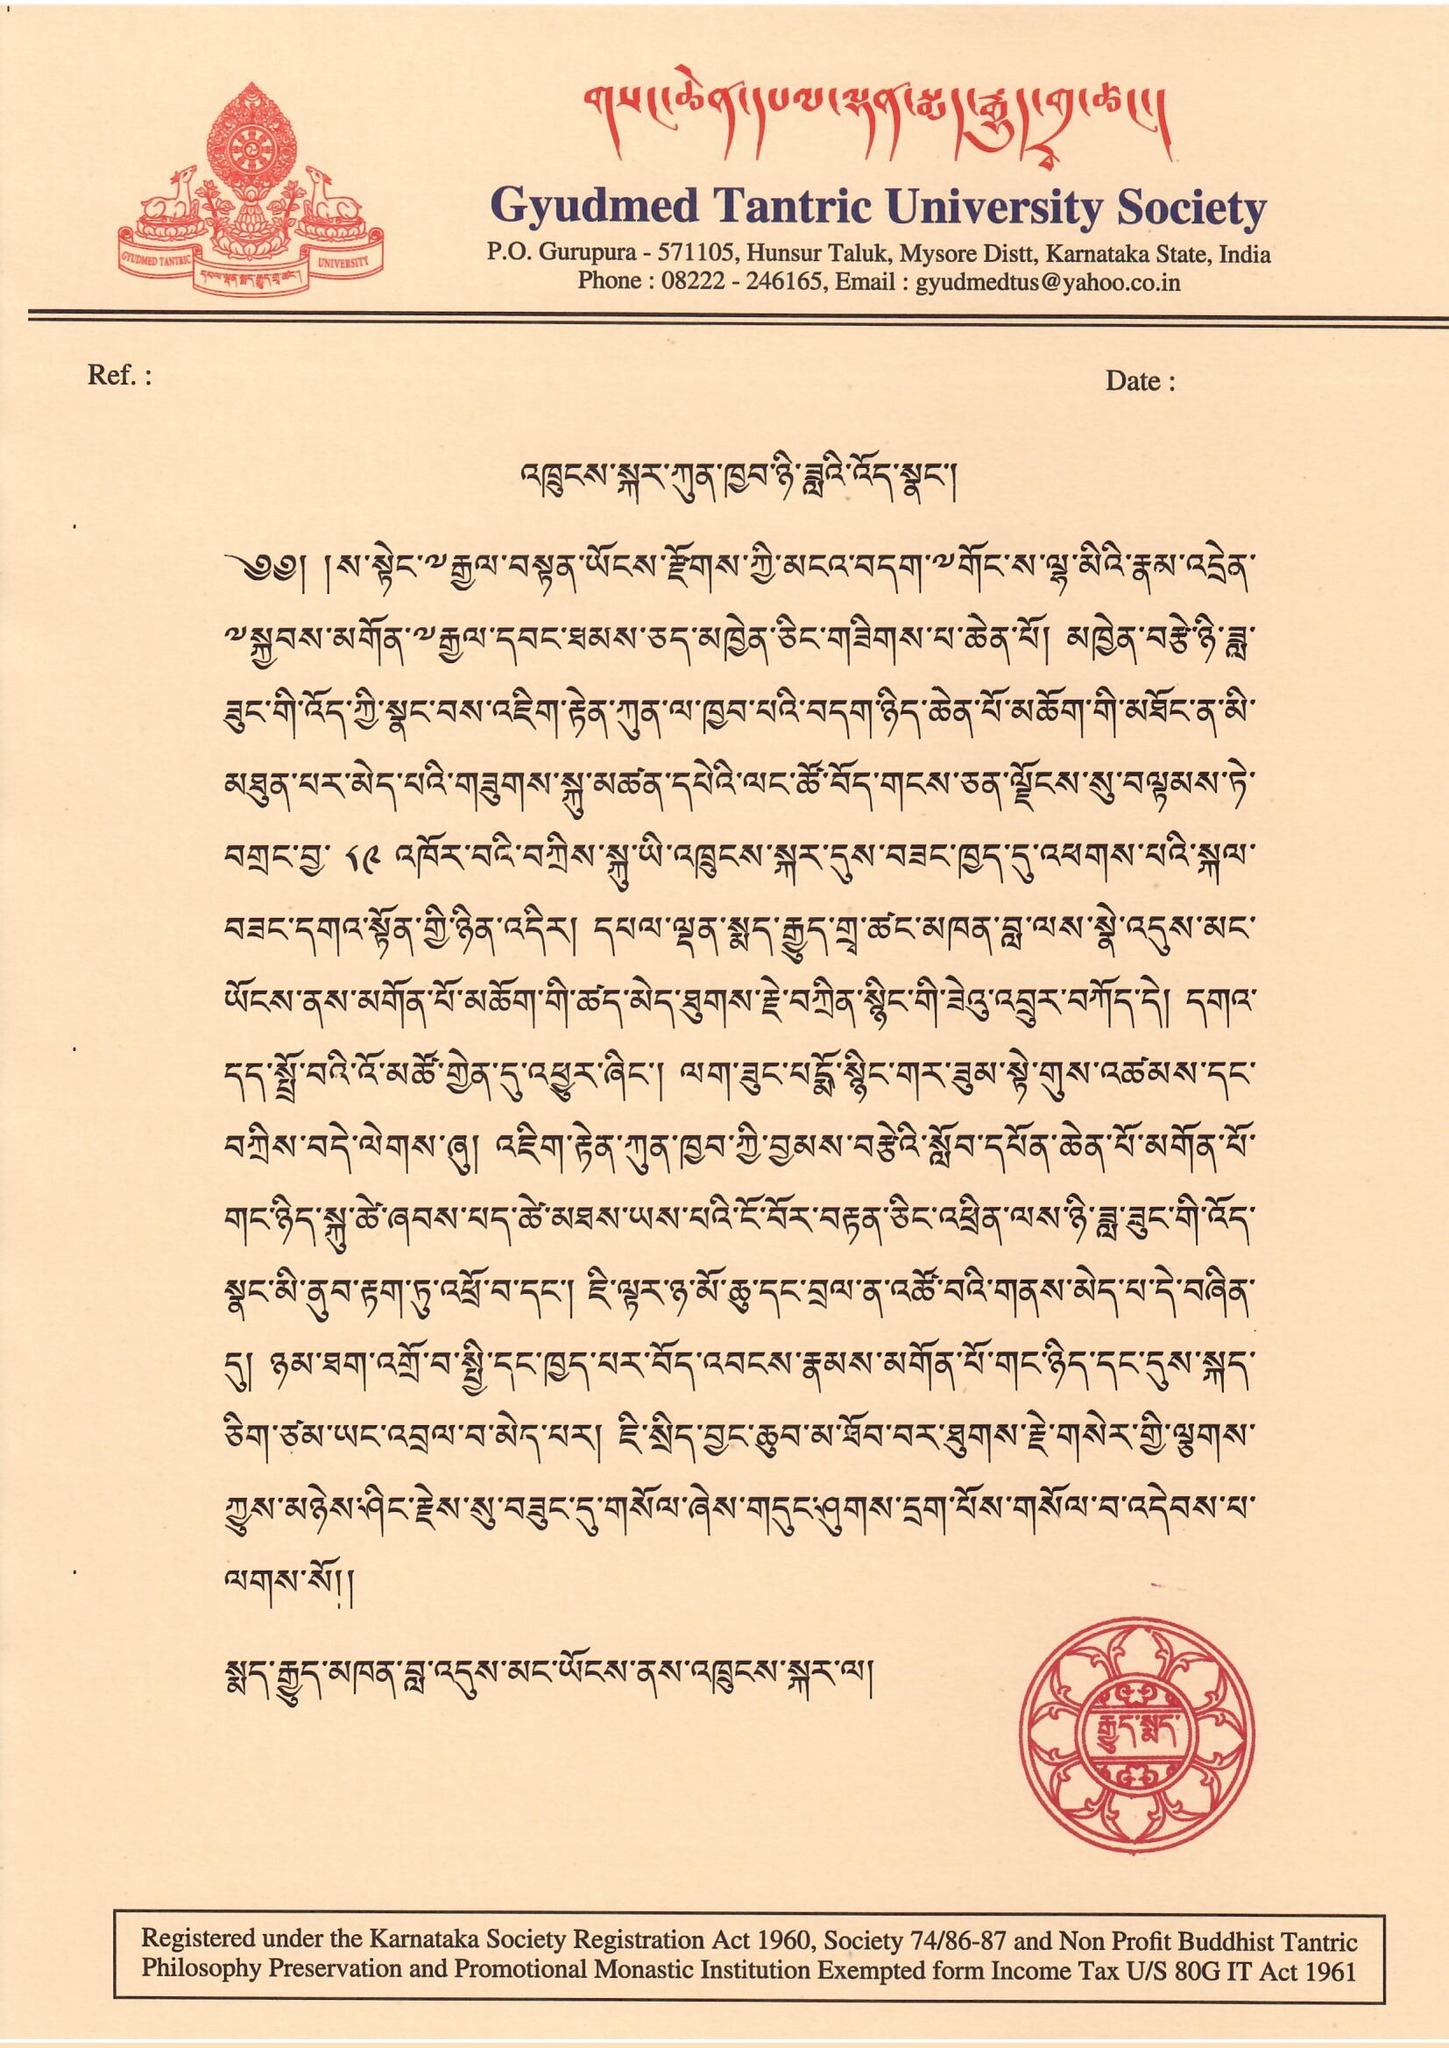 གསང་ཆེན་དཔལ་ལྡན་སྨད་རྒྱུད་གྲྭ་ཚང་།
Gyudmed Tantric University Society
P.O. Gurupura - 571105, Hunsur Taluk, Mysore Distt, Karnataka State, India
Phone : 08222 - 246165, Email : gyudmedtus@yahoo.co.in
GYUDMED TANTRIC UNIVERSITY
དཔལ་ལྡན་སྨད་རྒྱུད་གྲྭ་ཚང་།
Ref. :
Date :
འཁྲུངས་སྐར་ཀུན་ཁྱབ་ཉི་ཟླའི་འོད་སྣང་།
༄༅། །ས་སྟེང་༸རྒྱལ་བསྟན་ཡོངས་རྫོགས་ཀྱི་མངའ་བདག་༸གོང་ས་ལྷ་མིའི་རྣམ་འདྲེན་
༸སྐྱབས་མགོན་༸རྒྱལ་དབང་ཐམས་ཅད་མཁྱེན་ཅིང་གཟིགས་པ་ཆེན་པོ། མཁྱེན་བརྩེ་ཉི་ཟླ་
ཟུང་གི་འོད་ཀྱི་སྣང་བས་འཇིག་རྟེན་ཀུན་ལ་ཁྱབ་པའི་བདག་ཉིད་ཆེན་པོ་མཆོག་གི་མཐོང་ན་མི་
མཐུན་པར་མེད་པའི་གཟུགས་སྐུ་མཚན་དཔེའི་ལང་ཚོ་བོད་གངས་ཅན་ལྗོངས་སུ་བལྟམས་ཏེ་
བགྲང་བྱ་ ༨༩ འཁོར་བའི་བཀྲིས་སྐུ་ཡི་འཁྲུངས་སྐར་དུས་བཟང་ཁྱད་དུ་འཕགས་པའི་སྐལ་
བཟང་དགའ་སྟོན་གྱི་ཉིན་འདིར། དཔལ་ལྡན་སྨད་རྒྱུད་གྲྭ་ཚང་མཁན་བླ་ལས་སྣེ་འདུས་མང་
ཡོངས་ནས་མགོན་པོ་མཆོག་གི་ཚད་མེད་ཐུགས་རྗེ་བཀྲིན་སྙིང་གི་ཟེའུ་འབྲུར་བཀོད་དེ། དགའ་
དད་སྤྲོ་བའི་འོ་མཚོ་གྱེན་དུ་འཕྱུར་ཞིང་། ལག་ཟུང་པདྨོ་སྙིང་གར་ཟུམ་སྟེ་གུས་འཚམས་དང་
བཀྲིས་བདེ་ལེགས་ཞུ། འཇིག་རྟེན་ཀུན་ཁྱབ་ཀྱི་བྱམས་བརྩེའི་སློབ་དཔོན་ཆེན་པོ་མགོན་པོ་
གང་ཉིད་སྐུ་ཚེ་ཞབས་པད་ཚེ་མཐས་ཡས་པའི་ངོ་བོར་བརྟན་ཅིང་འཕྲིན་ལས་ཉི་ཟླ་ཟུང་གི་འོད་
སྣང་མི་ནུབ་རྟག་ཏུ་འཕྲོ་བ་དང་། ཇི་ལྟར་ཉ་མོ་ཆུ་དང་བྲལ་ན་འཚོ་བའི་གནས་མེད་པ་དེ་བཞིན་
དུ། ཉམ་ཐག་འགྲོ་བ་སྤྱི་དང་ཁྱད་པར་བོད་འབངས་རྣམས་མགོན་པོ་གང་ཉིད་དང་དུས་སྐད་
ཅིག་ཙམ་ཡང་འབྲལ་བ་མེད་པར། ཇི་སྲིད་བྱང་ཆུབ་མ་ཐོབ་བར་ཐུགས་རྗེ་གསེར་གྱི་ལྕུགས་
ཀྱུས་མཉེས་ཤིང་རྗེས་སུ་བཟུང་དུ་གསོལ་ཞེས་གདུང་ཤུགས་དྲག་པོས་གསོལ་བ་འདེབས་པ་
ལགས་སོ།།
སྨད་རྒྱུད་མཁན་བླ་འདུས་མང་ཡོངས་ནས་འཁྲུངས་སྐར་ལ།
རྒྱུད་སྨད་
Registered under the Karnataka Society Registration Act 1960, Society 74/86-87 and Non Profit Buddhist Tantric
Philosophy Preservation and Promotional Monastic Institution Exempted form Income Tax U/S 80G IT Act 1961